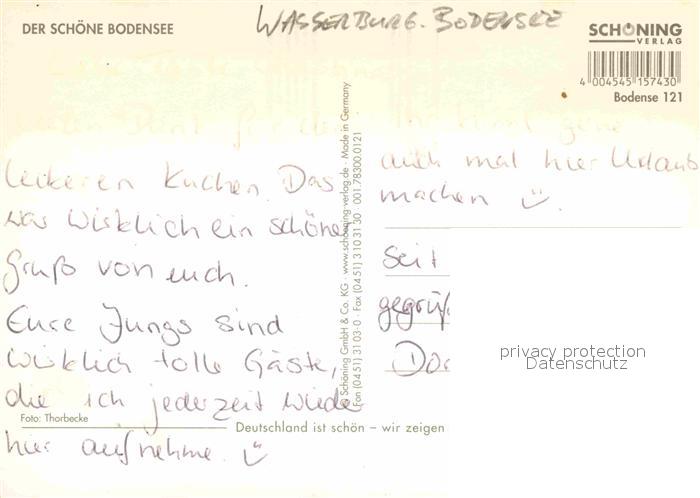 WASSERBURG. BODENSEE
DER SCHÖNE BODENSEE
SCHÖNING
VERLAG
4 004545 157430
Bodense 121
leckeren Kuchen. Das
war wirklich ein schöner
Gruß von euch.
Eure Jungs sind
wirklich tolle Gäste,
die ich jederzeit wieder
hier aufnehme.
Foto: Thorbecke
Schöning GmbH & Co. KG · www.schöning-verlag.de · Made in Germany
Fon (04 51) 3 10 3-0 · Fax (04 51) 310 31 30 001.78300.0121
Deutschland ist schön – wir zeigen
auch mal hier Urlaub
machen
Seit
gegrüß
privacy protection
Datenschutz